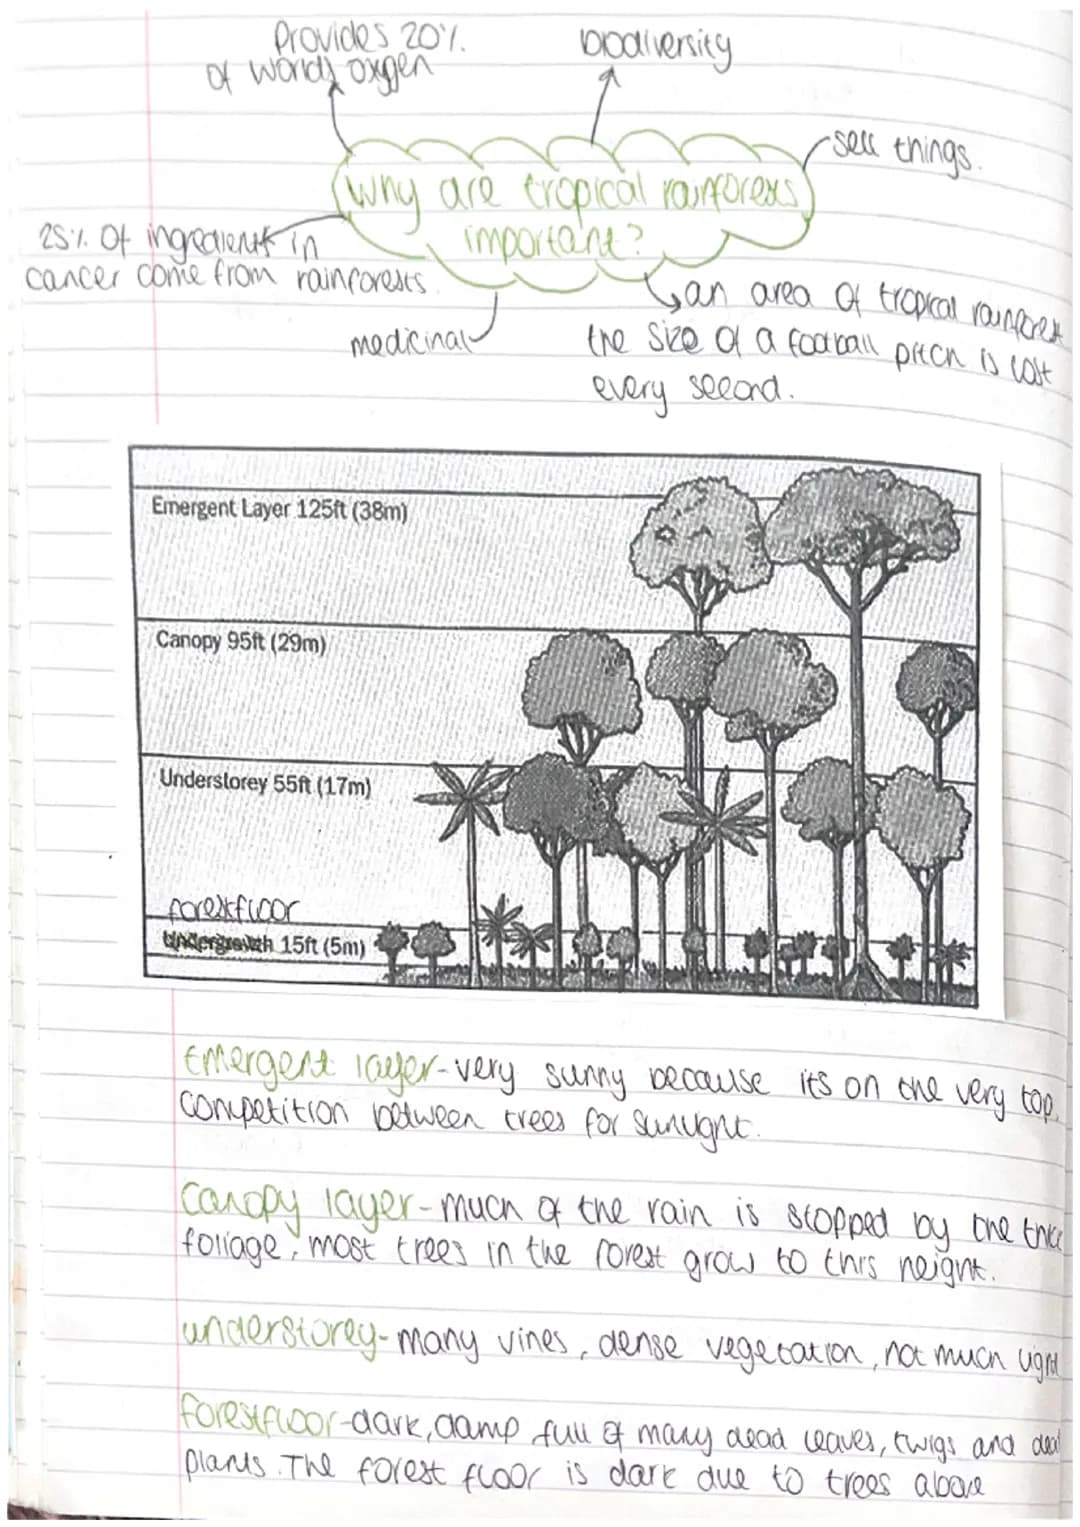 Provides 20%
of worlds oxygen
biodiversity
sell things.
Why are tropical rainforests
important?
25% of ingredients in
cancer come from rainforests.
medicinal
an area of tropical rainforest
the size of a football pitch is lost
every second.
Emergent Layer 125ft (38m)
Canopy 95ft (29m)
Understorey 55ft (17m)
forestfloor
Undergrowth 15ft (5m)
Emergent layer-very sunny because its on the very top.
Competition between trees for sunlight.
Canopy layer-much of the rain is stopped by the thic
foliage, most trees in the forest grow to this height.
understorey-many vines, dense vegetation, not much light
forestfloor-dark, damp full of many dead leaves, twigs and
plants. The forest floor is dark due to trees above